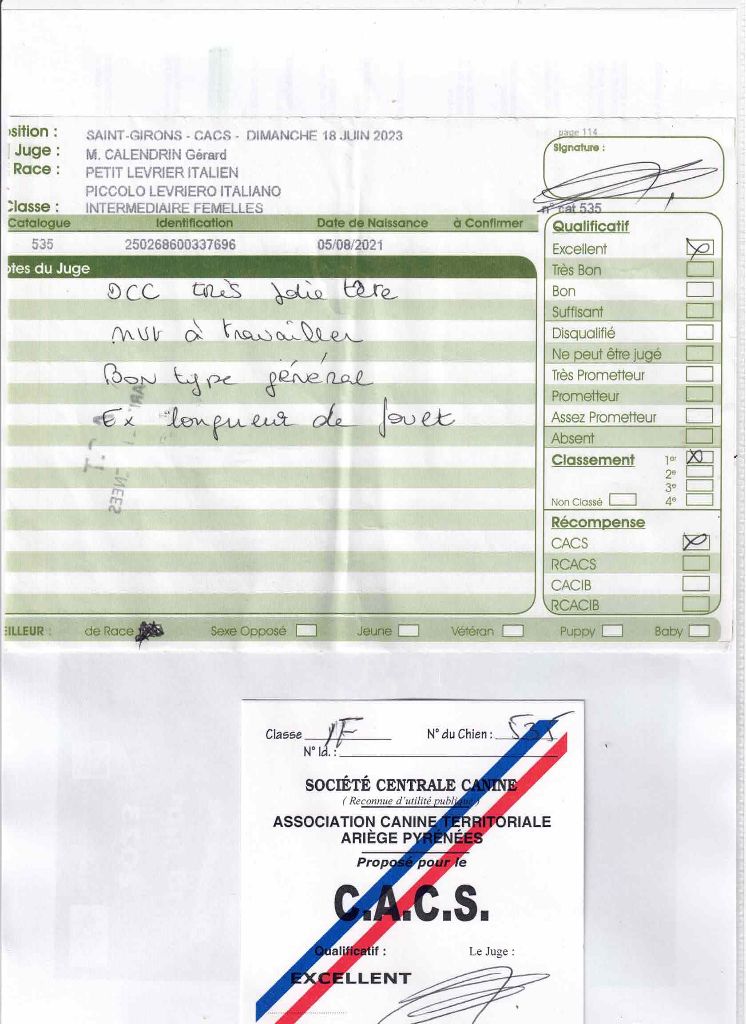 page 114
sition : SAINT-GIRONS - CACS - DIMANCHE 18 JUIN 2023
Juge : M. CALENDRIN Gérard
Signature :
Race : PETIT LEVRIER ITALIEN
PICCOLO LEVRIERO ITALIANO
Classe : INTERMEDIAIRE FEMELLES
n° cat 535
Catalogue Identification Date de Naissance à Confirmer
535 250268600337696 05/08/2021
otes du Juge
DCC très jolie tête
à travailler
Bon type général
Ex longueur de fouet
Qualificatif
Excellent
Très Bon
Bon
Suffisant
Disqualifié
Ne peut être jugé
Très Prometteur
Prometteur
Assez Prometteur
Absent
Classement 1er
2e
3e
Non Classé 4e
Récompense
CACS
RCACS
CACIB
RCACIB
EILLEUR : de Race Sexe Opposé Jeune Vétéran Puppy Baby
Classe IF N° du Chien : 535
N° Id. :
SOCIÉTÉ CENTRALE CANINE
( Reconnue d'utilité publique )
ASSOCIATION CANINE TERRITORIALE
ARIÈGE PYRÉNÉES
Proposé pour le
C.A.C.S.
Qualificatif : Le Juge :
EXCELLENT